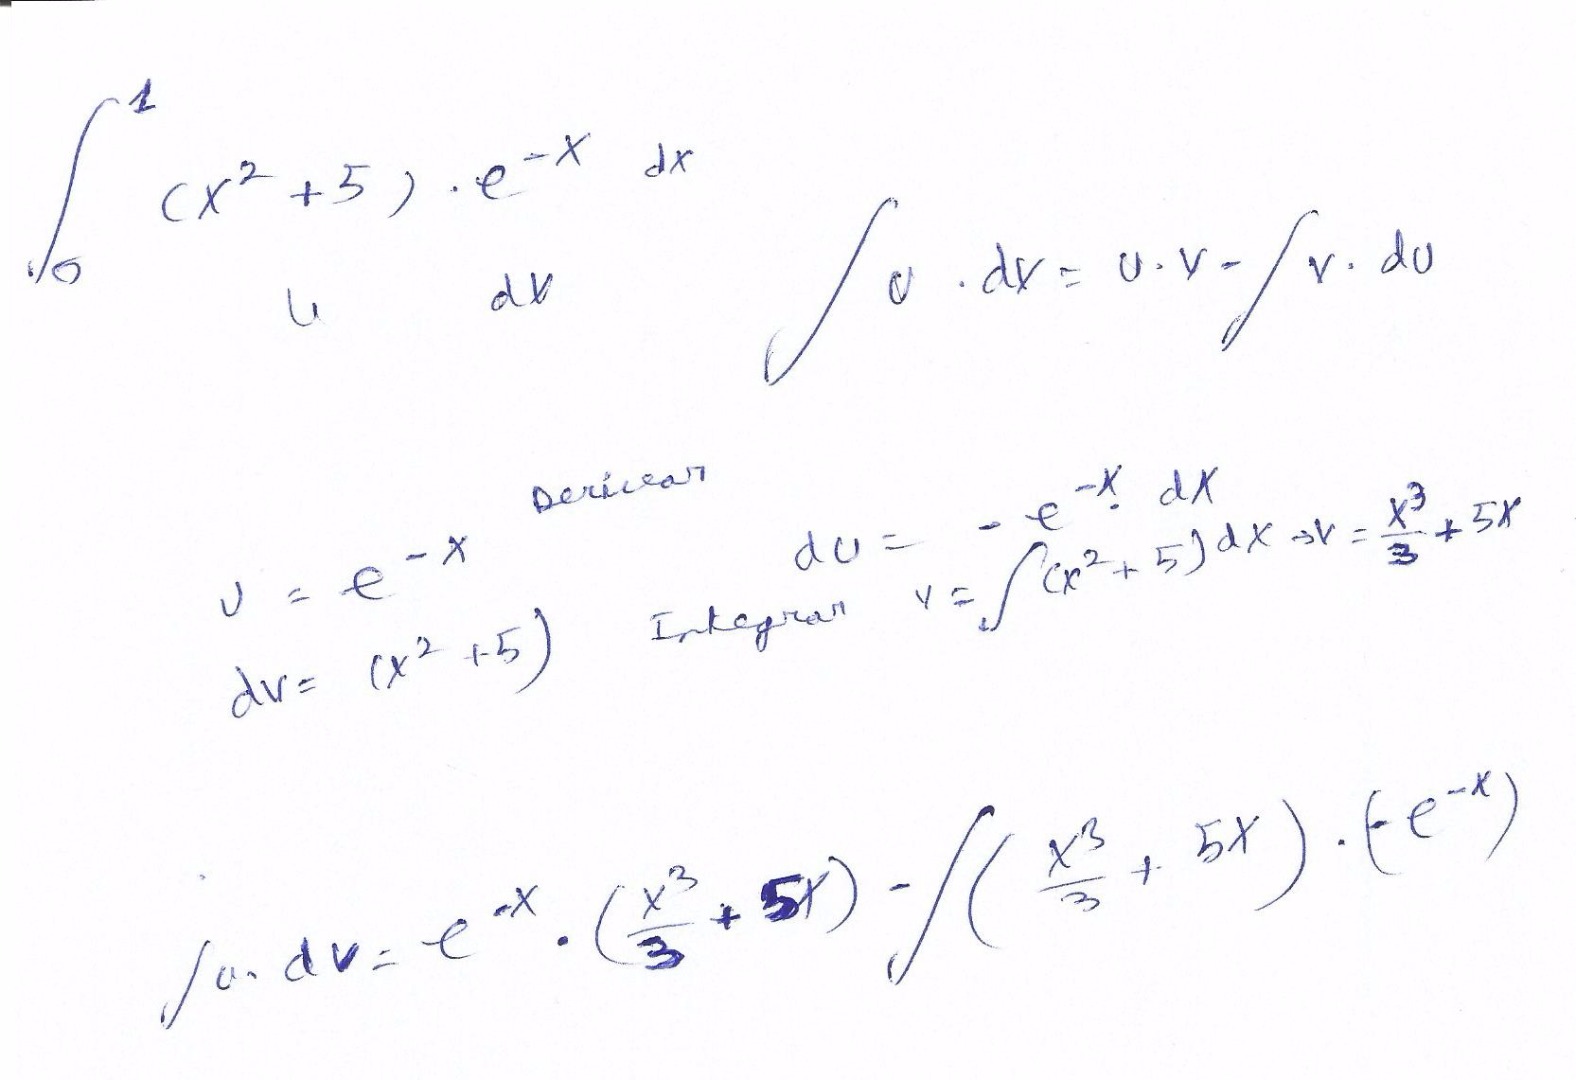 ∫₀¹ (x² + 5) · e⁻ˣ dx
u dv
∫ u · dv = u · v - ∫ v · du
u = e⁻ˣ Derivar du = - e⁻ˣ · dx
dv = (x² + 5) Integrar v = ∫ (x² + 5) dx → v = x³/3 + 5x
∫ u · dv = e⁻ˣ · (x³/3 + 5x) - ∫ (x³/3 + 5x) · (-e⁻ˣ)